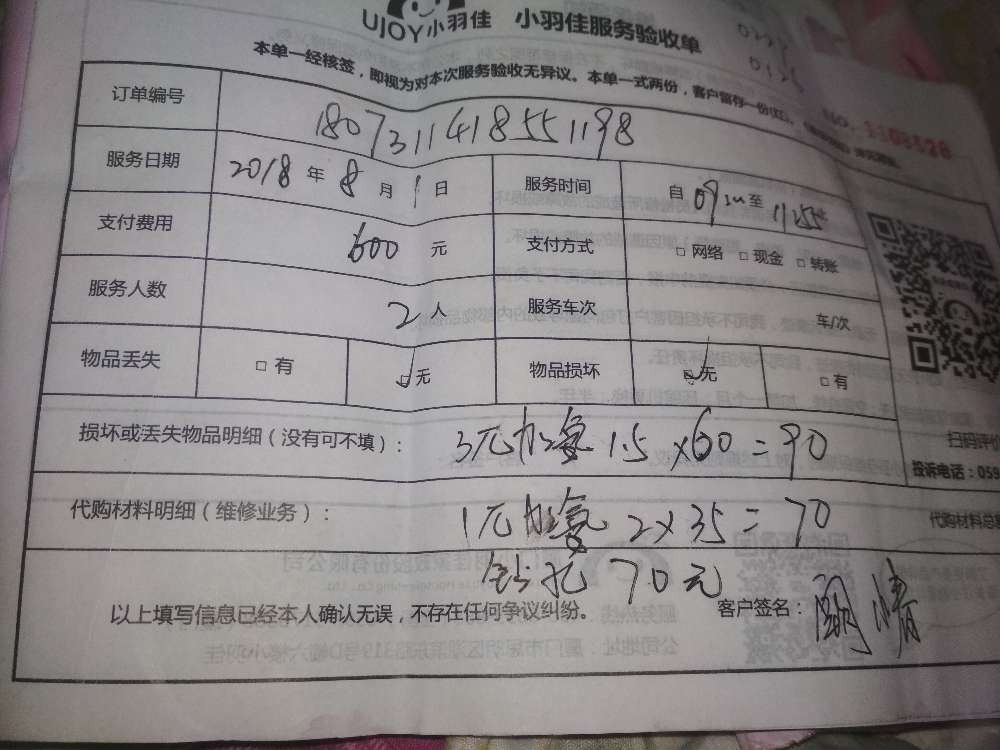 UJOY小羽佳 小羽佳服务验收单
本单一经核签，即视为对本次服务验收无异议。本单一式两份，客户留存一份
订单编号 1807311418551198
服务日期 2018年8月1日 服务时间 自 09 至 1125
支付费用 600元 支付方式 □网络 □现金 □转账
服务人数 2人 服务车次 车/次
物品丢失 □有 □无 物品损坏 □无 □有
损坏或丢失物品明细（没有可不填）： 3匹加氟 1.5×60=90
扫码评价
投诉电话：059
代购材料明细（维修业务）： 1匹加氟 2×35=70
代购材料总
钻孔70元
以上填写信息已经本人确认无误，不存在任何争议纠纷。 客户签名：